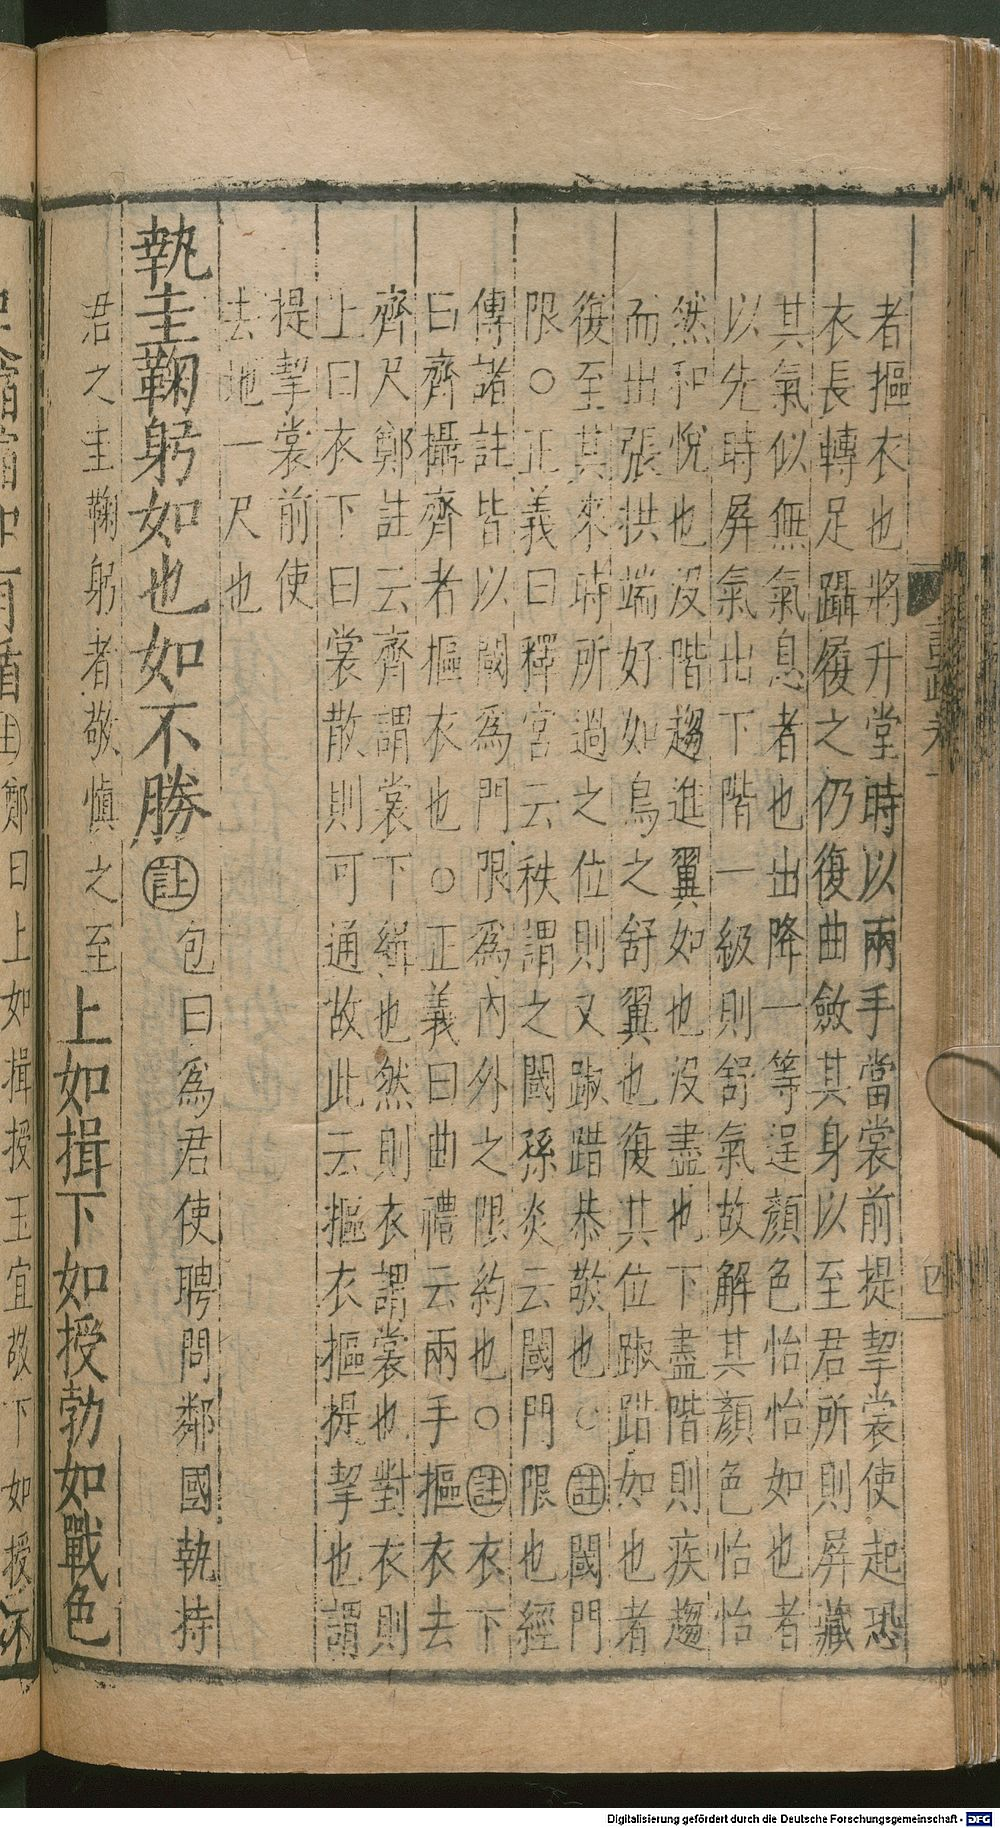 者摳衣也將升堂時以兩手當裳前提挈裳使起恐
衣長轉足躡履之仍復曲斂其身以至君所則屏藏
其氣似無氣息者也出降一等逞顏色怡怡如也者
以先時屏氣出下階一級則舒氣故解其顏色怡怡
然和悅也沒階趨進翼如也沒盡也下盡階則疾趨
而出張拱端好如鳥之舒翼也復其位踧踖如也者
復至其來時所過之位則又踧踖恭敬也○註閾門
限○正義曰釋宮云秩謂之閾孫炎云閾門限也經
傳諸註皆以閾為門限為內外之限約也○註衣下
曰齊攝齊者摳衣也○正義曰曲禮云兩手摳衣去
齊尺鄭註云齊謂裳下緝也然則衣謂裳也對衣則
上曰衣下曰裳散則可通故此云摳衣摳提挈也謂
提挈裳前使
去地一尺也
執圭鞠躬如也如不勝註包曰為君使聘問鄰國執持
君之圭鞠躬者敬慎之至上如揖下如授勃如戰色
鄭曰上如揖授玉宜敬下如授不
四
Digitalisierung gefördert durch die Deutsche Forschungsgemeinschaft - DFG